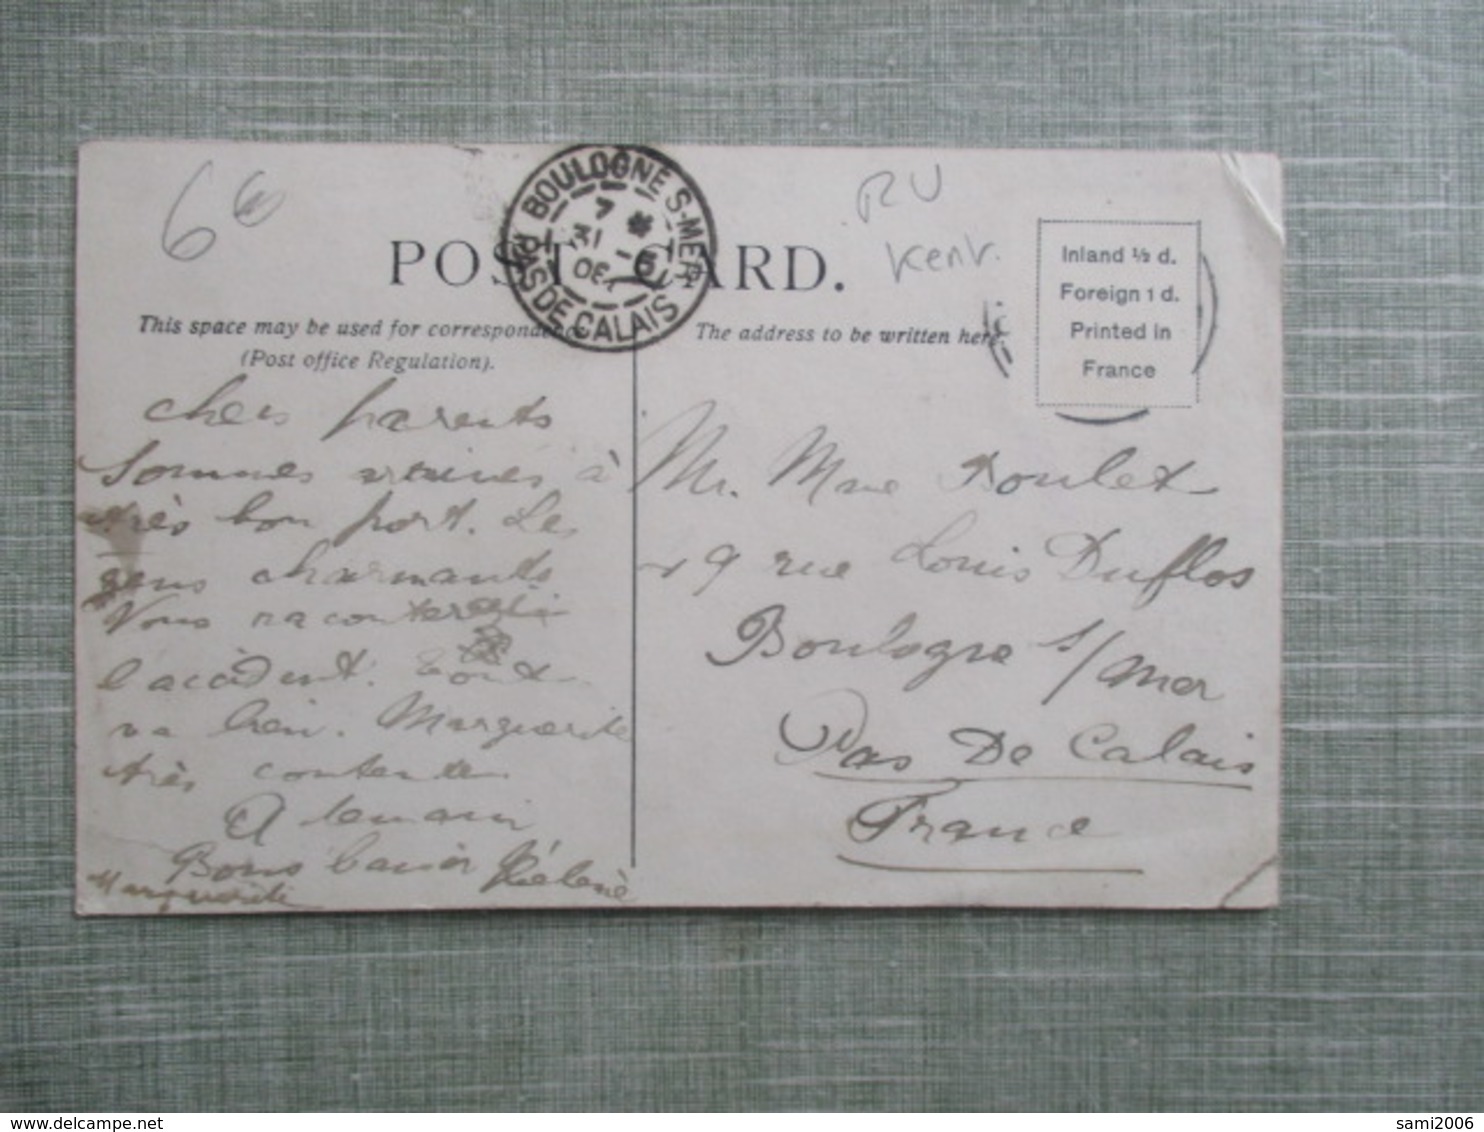 6€
RU
Kent.
BOULOGNE S-MER
7 *
31 -5
PAS DE CALAIS
POST CARD.
Inland ½ d.
Foreign 1 d.
Printed in
France
This space may be used for correspondence
(Post office Regulation).
The address to be written here.
chers parents
Sommes à
très bon port. Les
gens charmants
Vous raconterai
l'accident. Tout
va bien. Marguerite
très contente
A demain
Bons baiser Hélène
Marguerite
Mr. Mme Boulet
19 rue Louis Duflos
Boulogne s/mer
Pas De Calais
France
sami2006